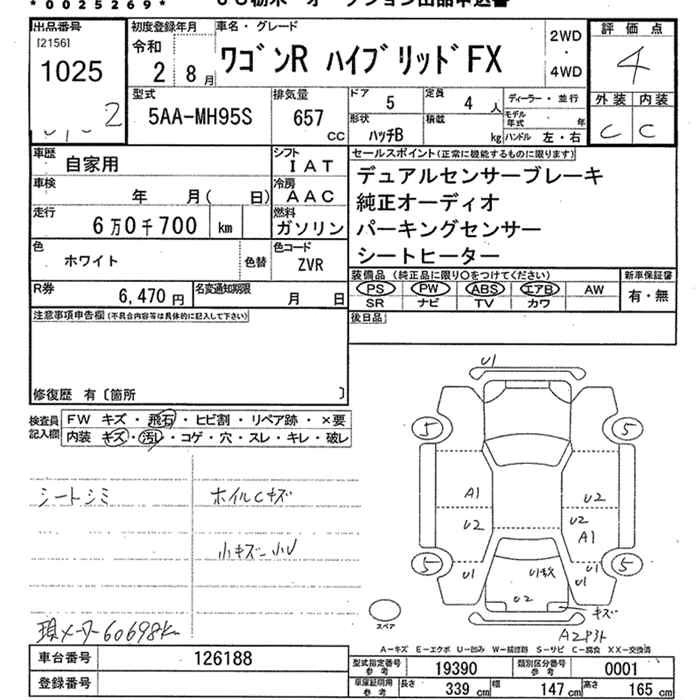 * 0 0 2 5 2 6 9 *
出品番号
[2156]
1025
2
初度登録年月
令和
2 8月
車名・グレード
ワゴンR ハイブリッドFX
2WD
・
4WD
評価点
4
外装 内装
C C
型式
5AA-MH95S
排気量
657
cc
ドア
5
定員
4 人
形状
ハッチB
積載
kg
ディーラー・並行
モデル年式 年
ハンドル 左・右
車歴
自家用
シフト
IAT
車検
年 月( 日)
冷房
AAC
走行
6万0千700 km
燃料
ガソリン
色
ホワイト
色替
色コード
ZVR
R券
6,470 円
名変通知期限
月 日
セールスポイント(正常に機能するものに限ります)
デュアルセンサーブレーキ
純正オーディオ
パーキングセンサー
シートヒーター
装備品 (純正品に限り○をつけてください)
PS PW ABS エアB AW
SR ナビ TV カワ
新車保証書
有・無
後日品
注意事項申告欄(不具合内容等は具体的に記入して下さい)
修復歴 有〔箇所 〕
検査員
記入欄
FW キズ・飛石・ヒビ割・リペア跡・×要
内装 キズ・汚レ・コゲ・穴・スレ・キレ・破レ
シートシミ
ホイルCキズ
小キズ一小U
現メーター60698km
U1
5 5
A1 U2
U2 U2
A1
5 5
U1 U1キズ U1
U1
U2
キズ
スペア
A=キズ E=エクボ U=凹み W=補修跡 S=サビ C=腐食 XX=交換済
車台番号
126188
登録番号
型式指定番号
参考
19390
類別区分番号
参考
0001
車庫証明用
参考
長さ
339 cm
幅
147 cm
高さ
165 cm